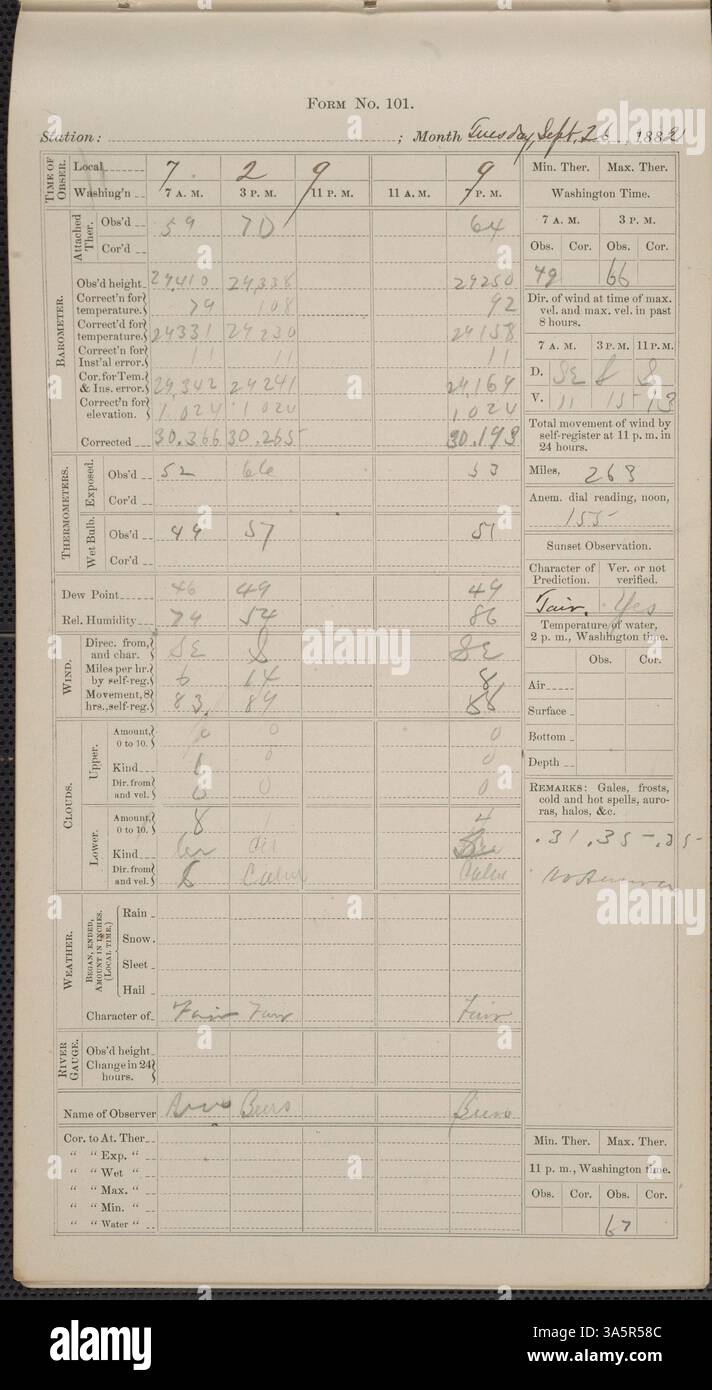 FORM No. 101.
Station: ; Month Tuesday, Sept. 26, 1882
TIME OF OBSER. Local 7 2 9 9
Washing'n 7 A. M. 3 P. M. 11 P. M. 11 A. M. 7 P. M.
Attached Ther. Obs'd 59 70 64
Cor'd
BAROMETER.
Obs'd height 29,410 29,338 29250
Correct'n for temperature. 79 108 92
Correct'd for temperature. 29331 29230 29158
Correct'n for Inst'al error. 11 11 11
Cor. for Tem. & Ins. error. 29,342 29241 29,169
Correct'n for elevation. 1.024 1024 1.024
Corrected 30.366 30.265 30.193
THERMOMETERS.
Exposed. Obs'd 52 66 53
Cor'd
Wet Bulb. Obs'd 49 57 51
Cor'd
Dew Point 46 49 49
Rel. Humidity 79 54 86
WIND.
Direc. from, and char. SE S SE
Miles per hr. by self-reg. 6 14 8
Movement, 8 hrs., self-reg. 83 89 88
CLOUDS.
Upper. Amount, 0 to 10. 0 0 0
Kind 0 0
Dir. from and vel. 0 0 0
Lower. Amount, 0 to 10. 8 1 4
Kind Cir
Dir. from and vel. Calm Calm
WEATHER.
BEGAN, ENDED, AMOUNT IN INCHES. (LOCAL TIME.)
Rain
Snow
Sleet
Hail
Character of Fair Fair Fair
RIVER GAUGE.
Obs'd height
Change in 24 hours.
Name of Observer
Cor. to At. Ther
" " Exp. "
" " Wet "
" " Max. "
" " Min. "
" " Water "
Min. Ther. Max. Ther.
Washington Time.
7 A. M. 3 P. M.
Obs. Cor. Obs. Cor.
49 66
Dir. of wind at time of max. vel. and max. vel. in past 8 hours.
7 A. M. 3 P. M. 11 P. M.
D. SE S S
V. 11 15 13
Total movement of wind by self-register at 11 p. m. in 24 hours.
Miles, 263
Anem. dial reading, noon,
155
Sunset Observation.
Character of Prediction. Ver. or not verified.
Fair. Yes
Temperature of water, 2 p. m., Washington time.
Obs. Cor.
Air
Surface
Bottom
Depth
REMARKS: Gales, frosts, cold and hot spells, auroras, halos, &c.
.31 .35 .25
Min. Ther. Max. Ther.
11 p. m., Washington time.
Obs. Cor. Obs. Cor.
67
alamy
alamy
Image ID: 3A5R58C
www.alamy.com